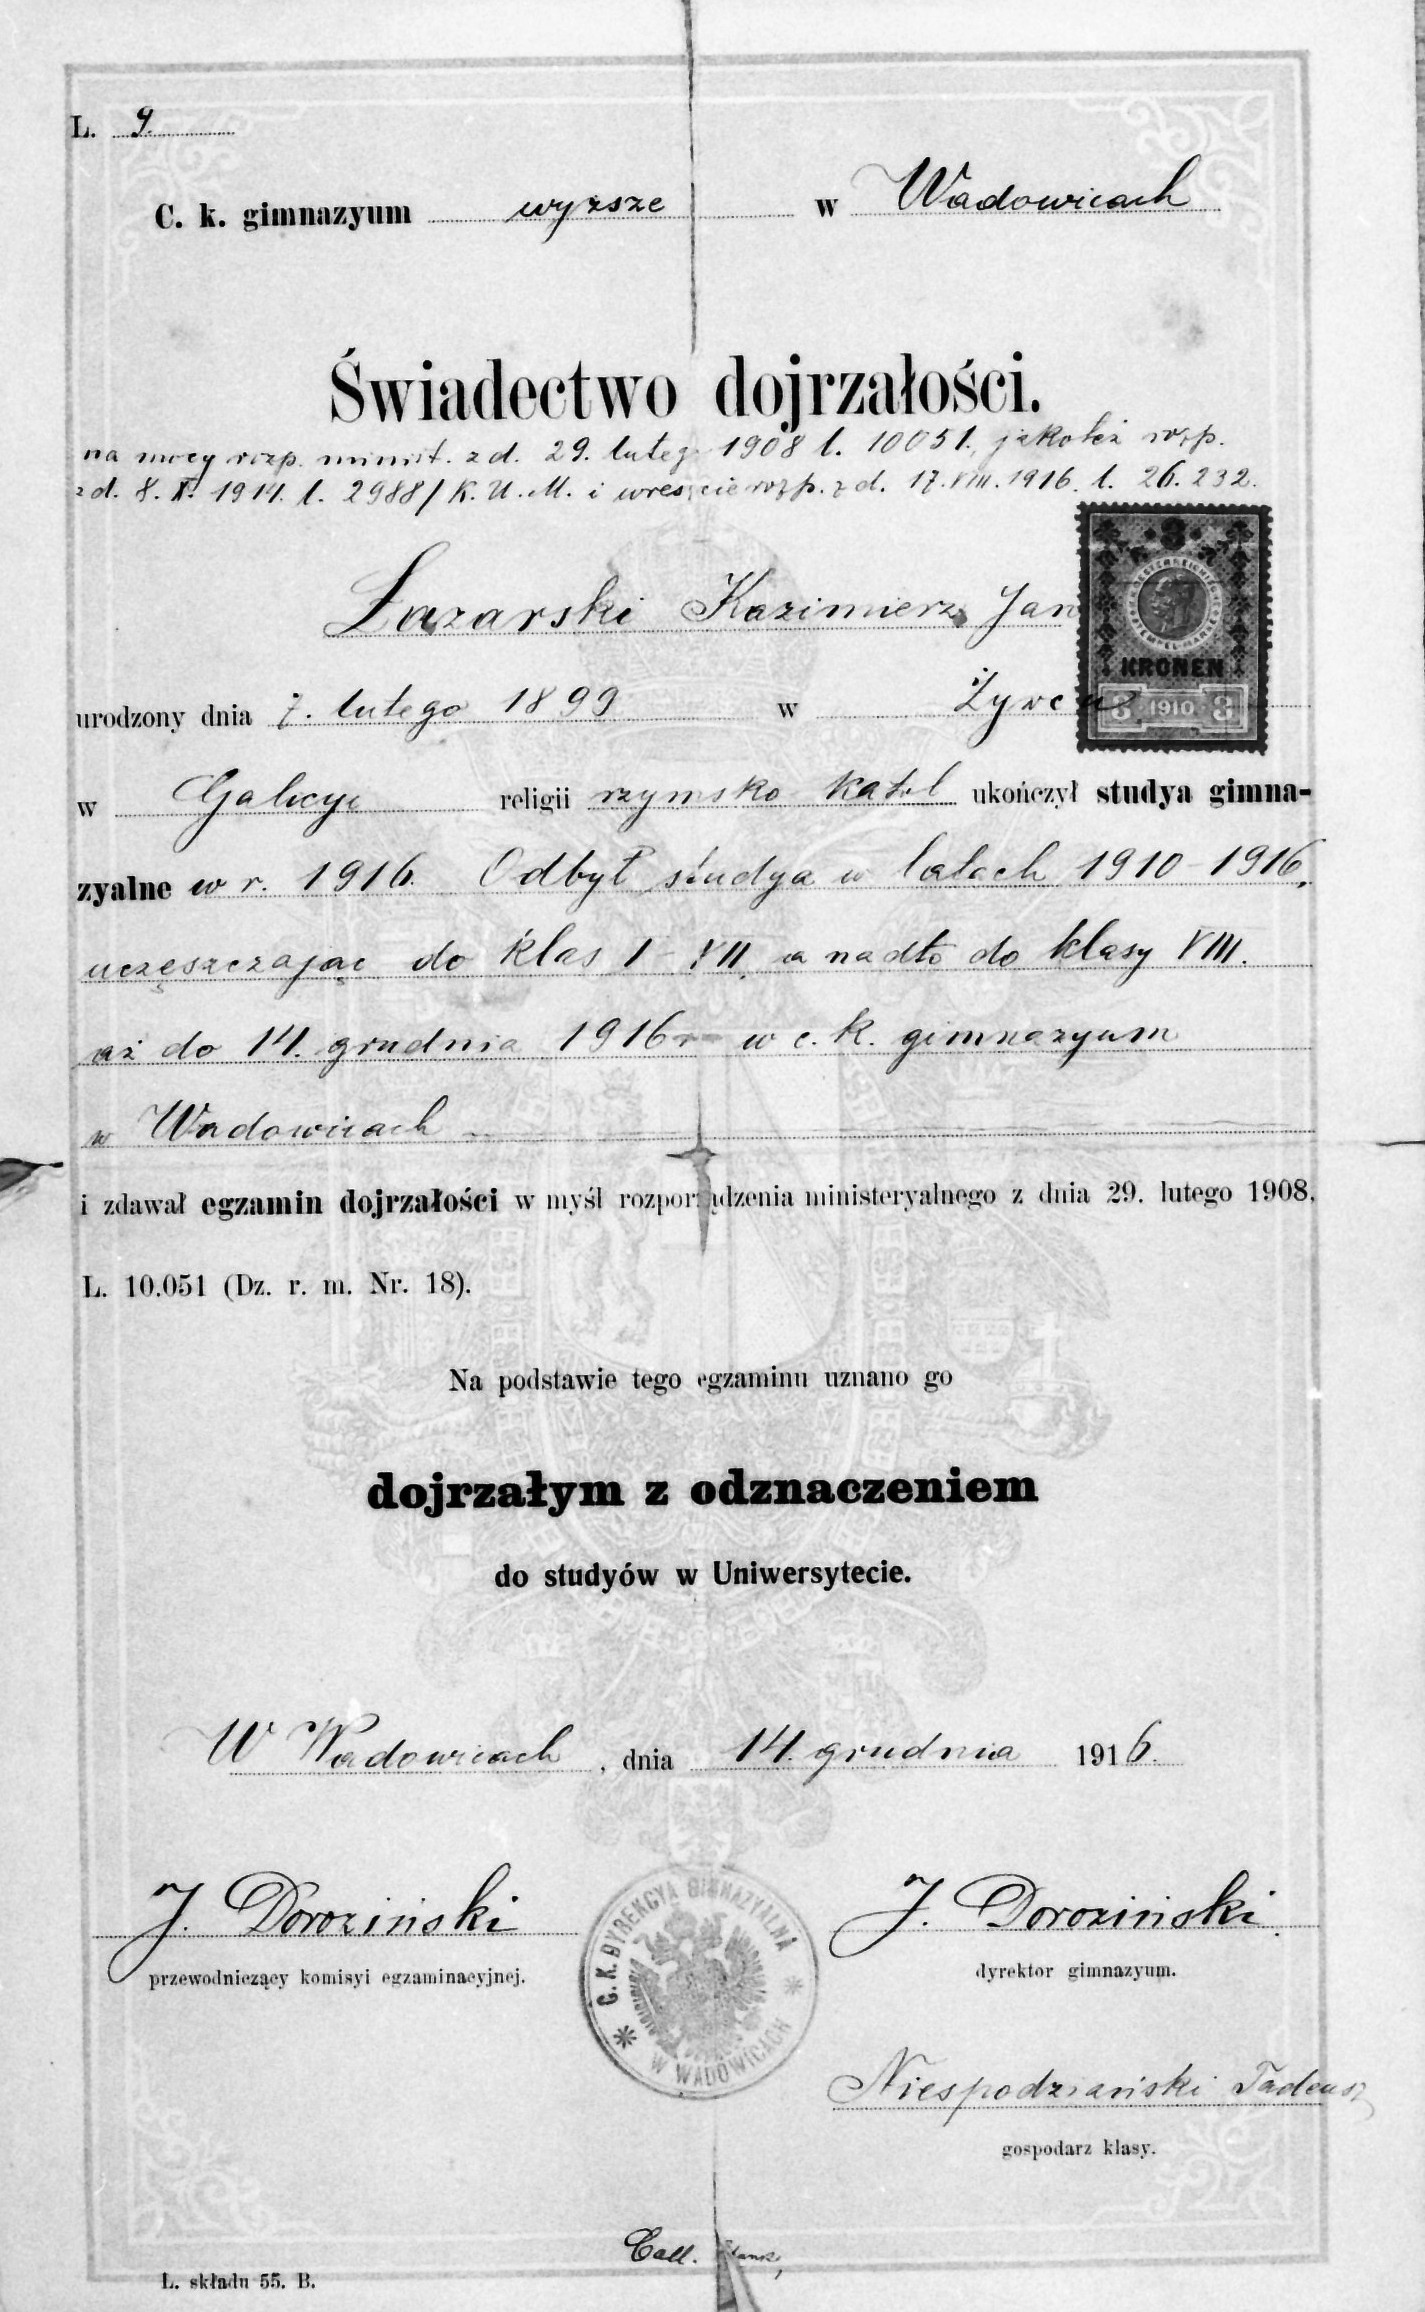 L. 9.
C. k. gimnazyum wyższe w Wadowicach
Świadectwo dojrzałości.
na mocy rozp. minist. z d. 29. lutego 1908 l. 10051, jakoteż rozp.
z d. 8. X. 1914. l. 2988/K.U.M. i wreszcie rozp. z d. 17.VIII.1916. l. 26.232.
Łazarski Kazimierz Jan
3
KRONEN
3 1910 3
urodzony dnia 7. lutego 1899 w Żywcu
w Galicyi religii rzymsko katol ukończył studya gimna-
zyalne w r. 1916. Odbył studya w latach 1910-1916,
uczęszczając do klas I-VII, a nadto do klasy VIII.
aż do 14. grudnia 1916 r w c. k. gimnazyum
w Wadowicach
i zdawał egzamin dojrzałości w myśl rozporządzenia ministeryalnego z dnia 29. lutego 1908,
L. 10.051 (Dz. r. m. Nr. 18).
Na podstawie tego egzaminu uznano go
dojrzałym z odznaczeniem
do studyów w Uniwersytecie.
W Wadowicach, dnia 14. grudnia 1916.
J. Doroziński
przewodniczący komisyi egzaminacyjnej.
C. K. DYREKCYA GIMNAZYALNA
W WADOWICACH
J. Doroziński.
dyrektor gimnazyum.
Niespodziański Tadeusz
gospodarz klasy.
Call.
L. składu 55. B.